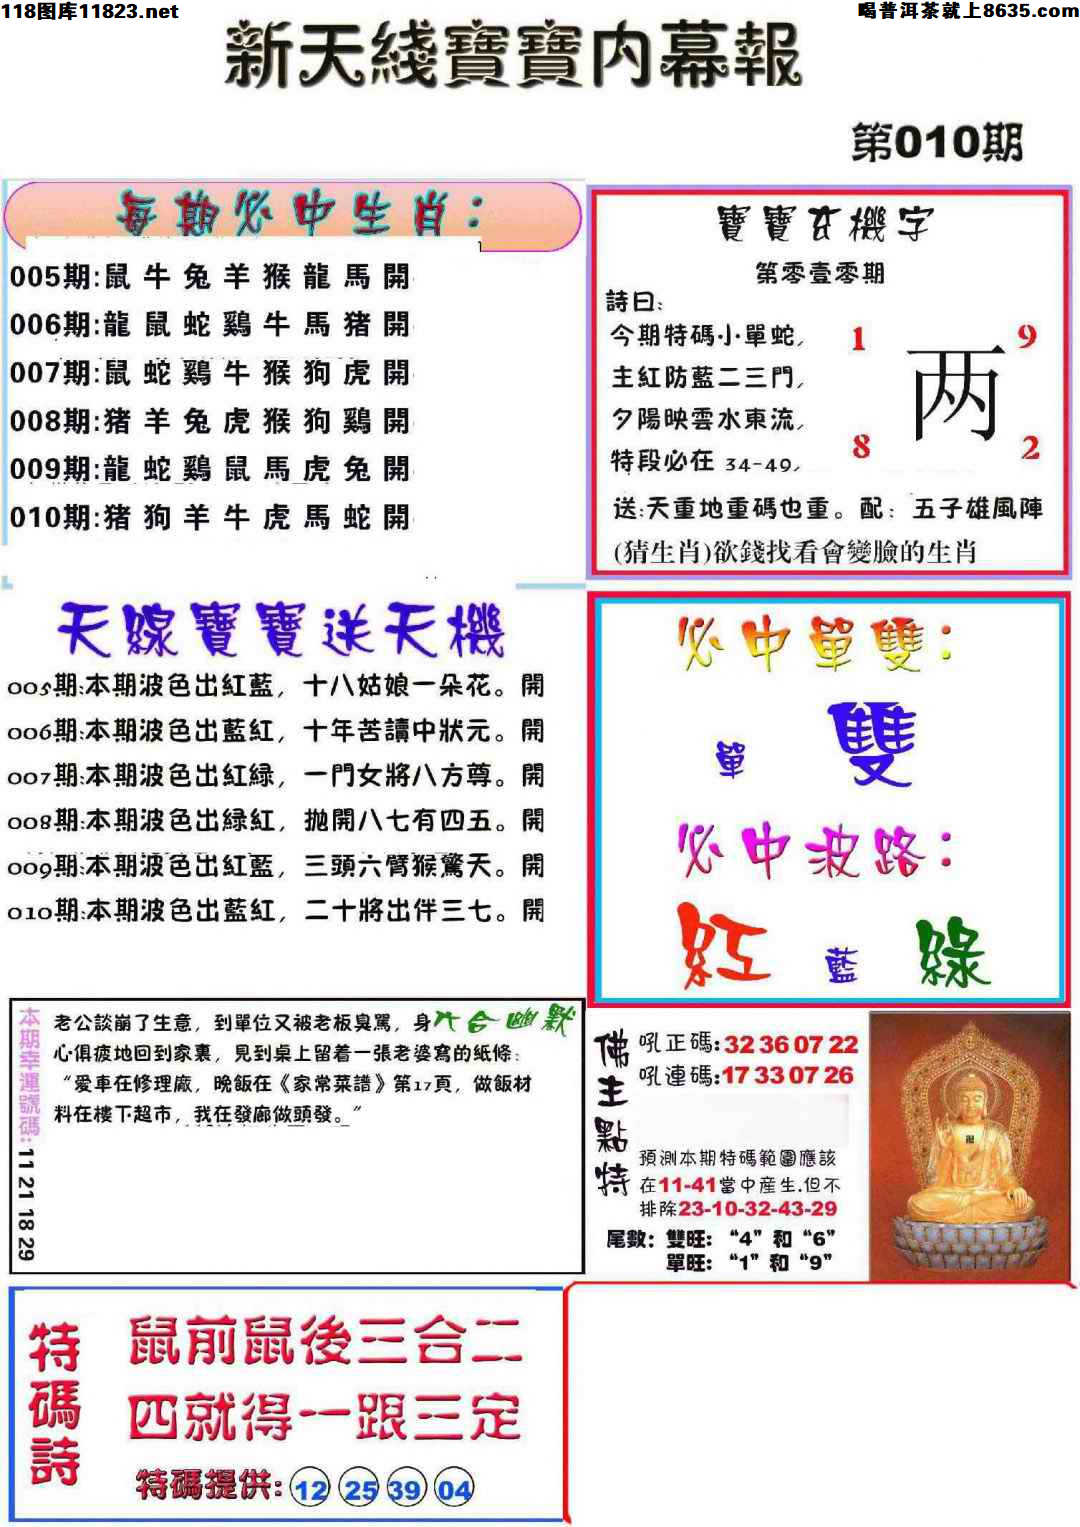 118图库11823.net
喝普洱茶就上8635.com
新天綫寶寶内幕報
第010期
每期必中生肖：
005期:鼠牛兔羊猴龍馬開
006期:龍鼠蛇鷄牛馬猪開
007期:鼠蛇鷄牛猴狗虎開
008期:猪羊兔虎猴狗鷄開
009期:龍蛇鷄鼠馬虎兔開
010期:猪狗羊牛虎馬蛇開
寶寶玄機字
第零壹零期
詩曰:
今期特碼小單蛇,
主紅防藍二三門,
夕陽映雲水東流,
特段必在 34-49,
1
9
两
8
2
送:天重地重碼也重。配：五子雄風陣
(猜生肖)欲錢找看會變臉的生肖
天線寶寶送天機
005期:本期波色出紅藍，十八姑娘一朵花。開
006期:本期波色出藍紅，十年苦讀中狀元。開
007期:本期波色出紅緑，一門女將八方尊。開
008期:本期波色出緑紅，抛開八七有四五。開
009期:本期波色出紅藍，三頭六臂猴驚天。開
010期:本期波色出藍紅，二十將出伴三七。開
必中單雙：
單
雙
必中波路：
紅
藍
綠
本期幸運號碼:11 21 18 29
六合幽默
老公談崩了生意，到單位又被老板臭罵，身
心俱疲地回到家裏，見到桌上留着一張老婆寫的紙條：
“愛車在修理廠，晚飯在《家常菜譜》第17頁，做飯材
料在樓下超市，我在發廊做頭發。”
佛主點特
吼正碼:32 36 07 22
吼連碼:17 33 07 26
預測本期特碼範圍應該
在11-41當中産生.但不
排除23-10-32-43-29
尾數：雙旺：“4”和“6”
單旺：“1”和“9”
特碼詩
鼠前鼠後三合二
四就得一跟三定
特碼提供: 12 25 39 04